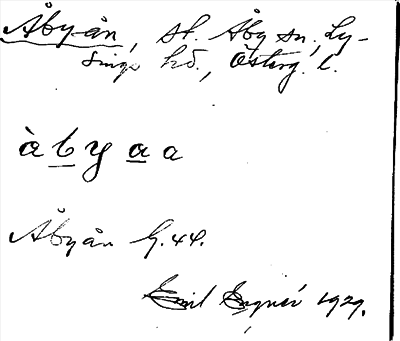 Åbyån, st. Åby sn., Ly-
sings hd., Österg. l.
àbyaa
Åbyån G.44.
Emil Engnér 1929.